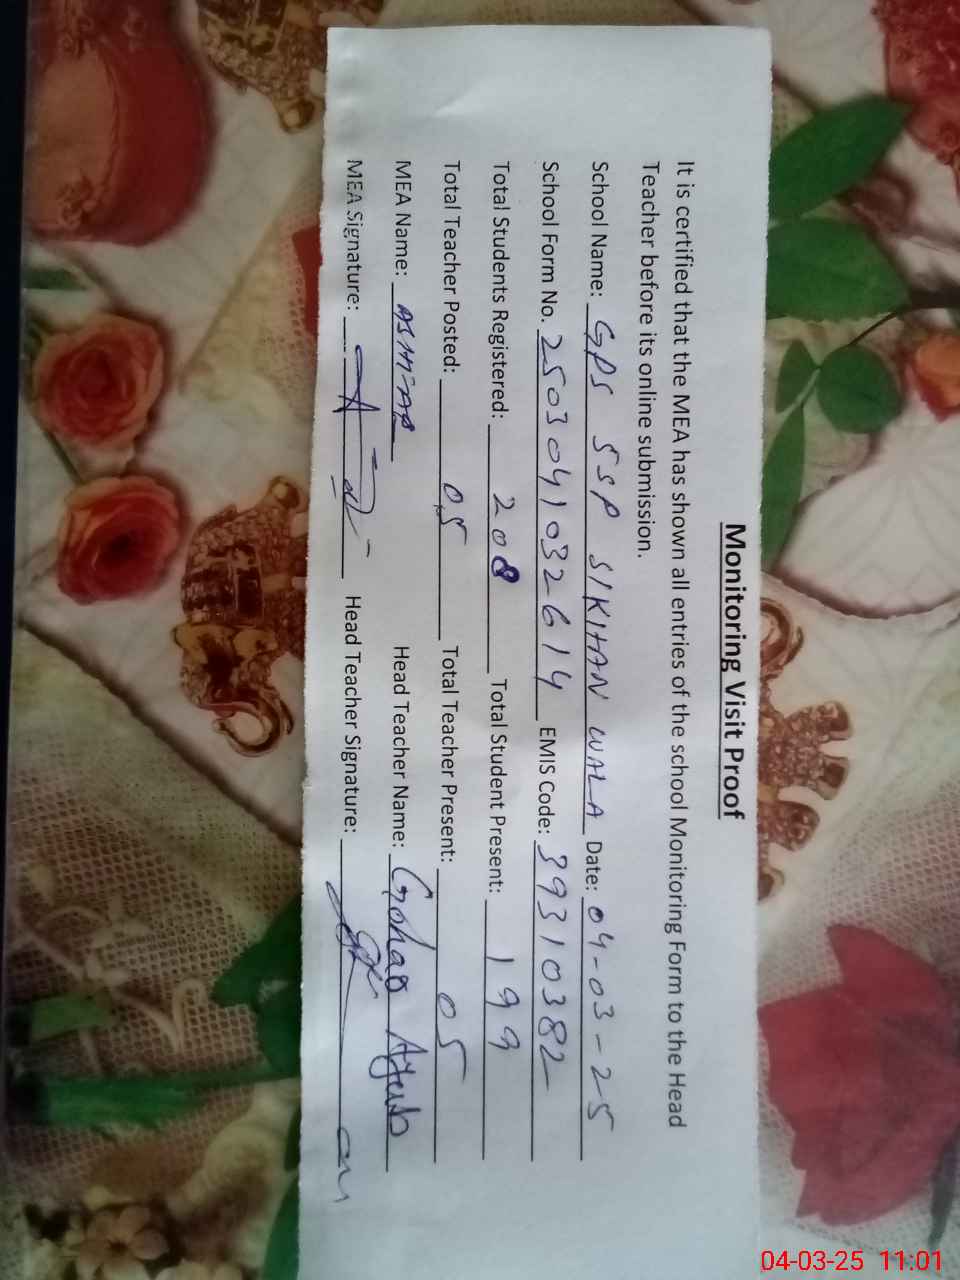 Monitoring Visit Proof
It is certified that the MEA has shown all entries of the school Monitoring Form to the Head
Teacher before its online submission.
School Name: GPS SSP SIKHAN WALA Date: 04-03-25
School Form No. 2503041032614 EMIS Code: 39310382
Total Students Registered: 208 Total Student Present: 199
Total Teacher Posted: 05 Total Teacher Present: 05
MEA Name: Head Teacher Name:
MEA Signature: Head Teacher Signature:
04-03-25 11:01